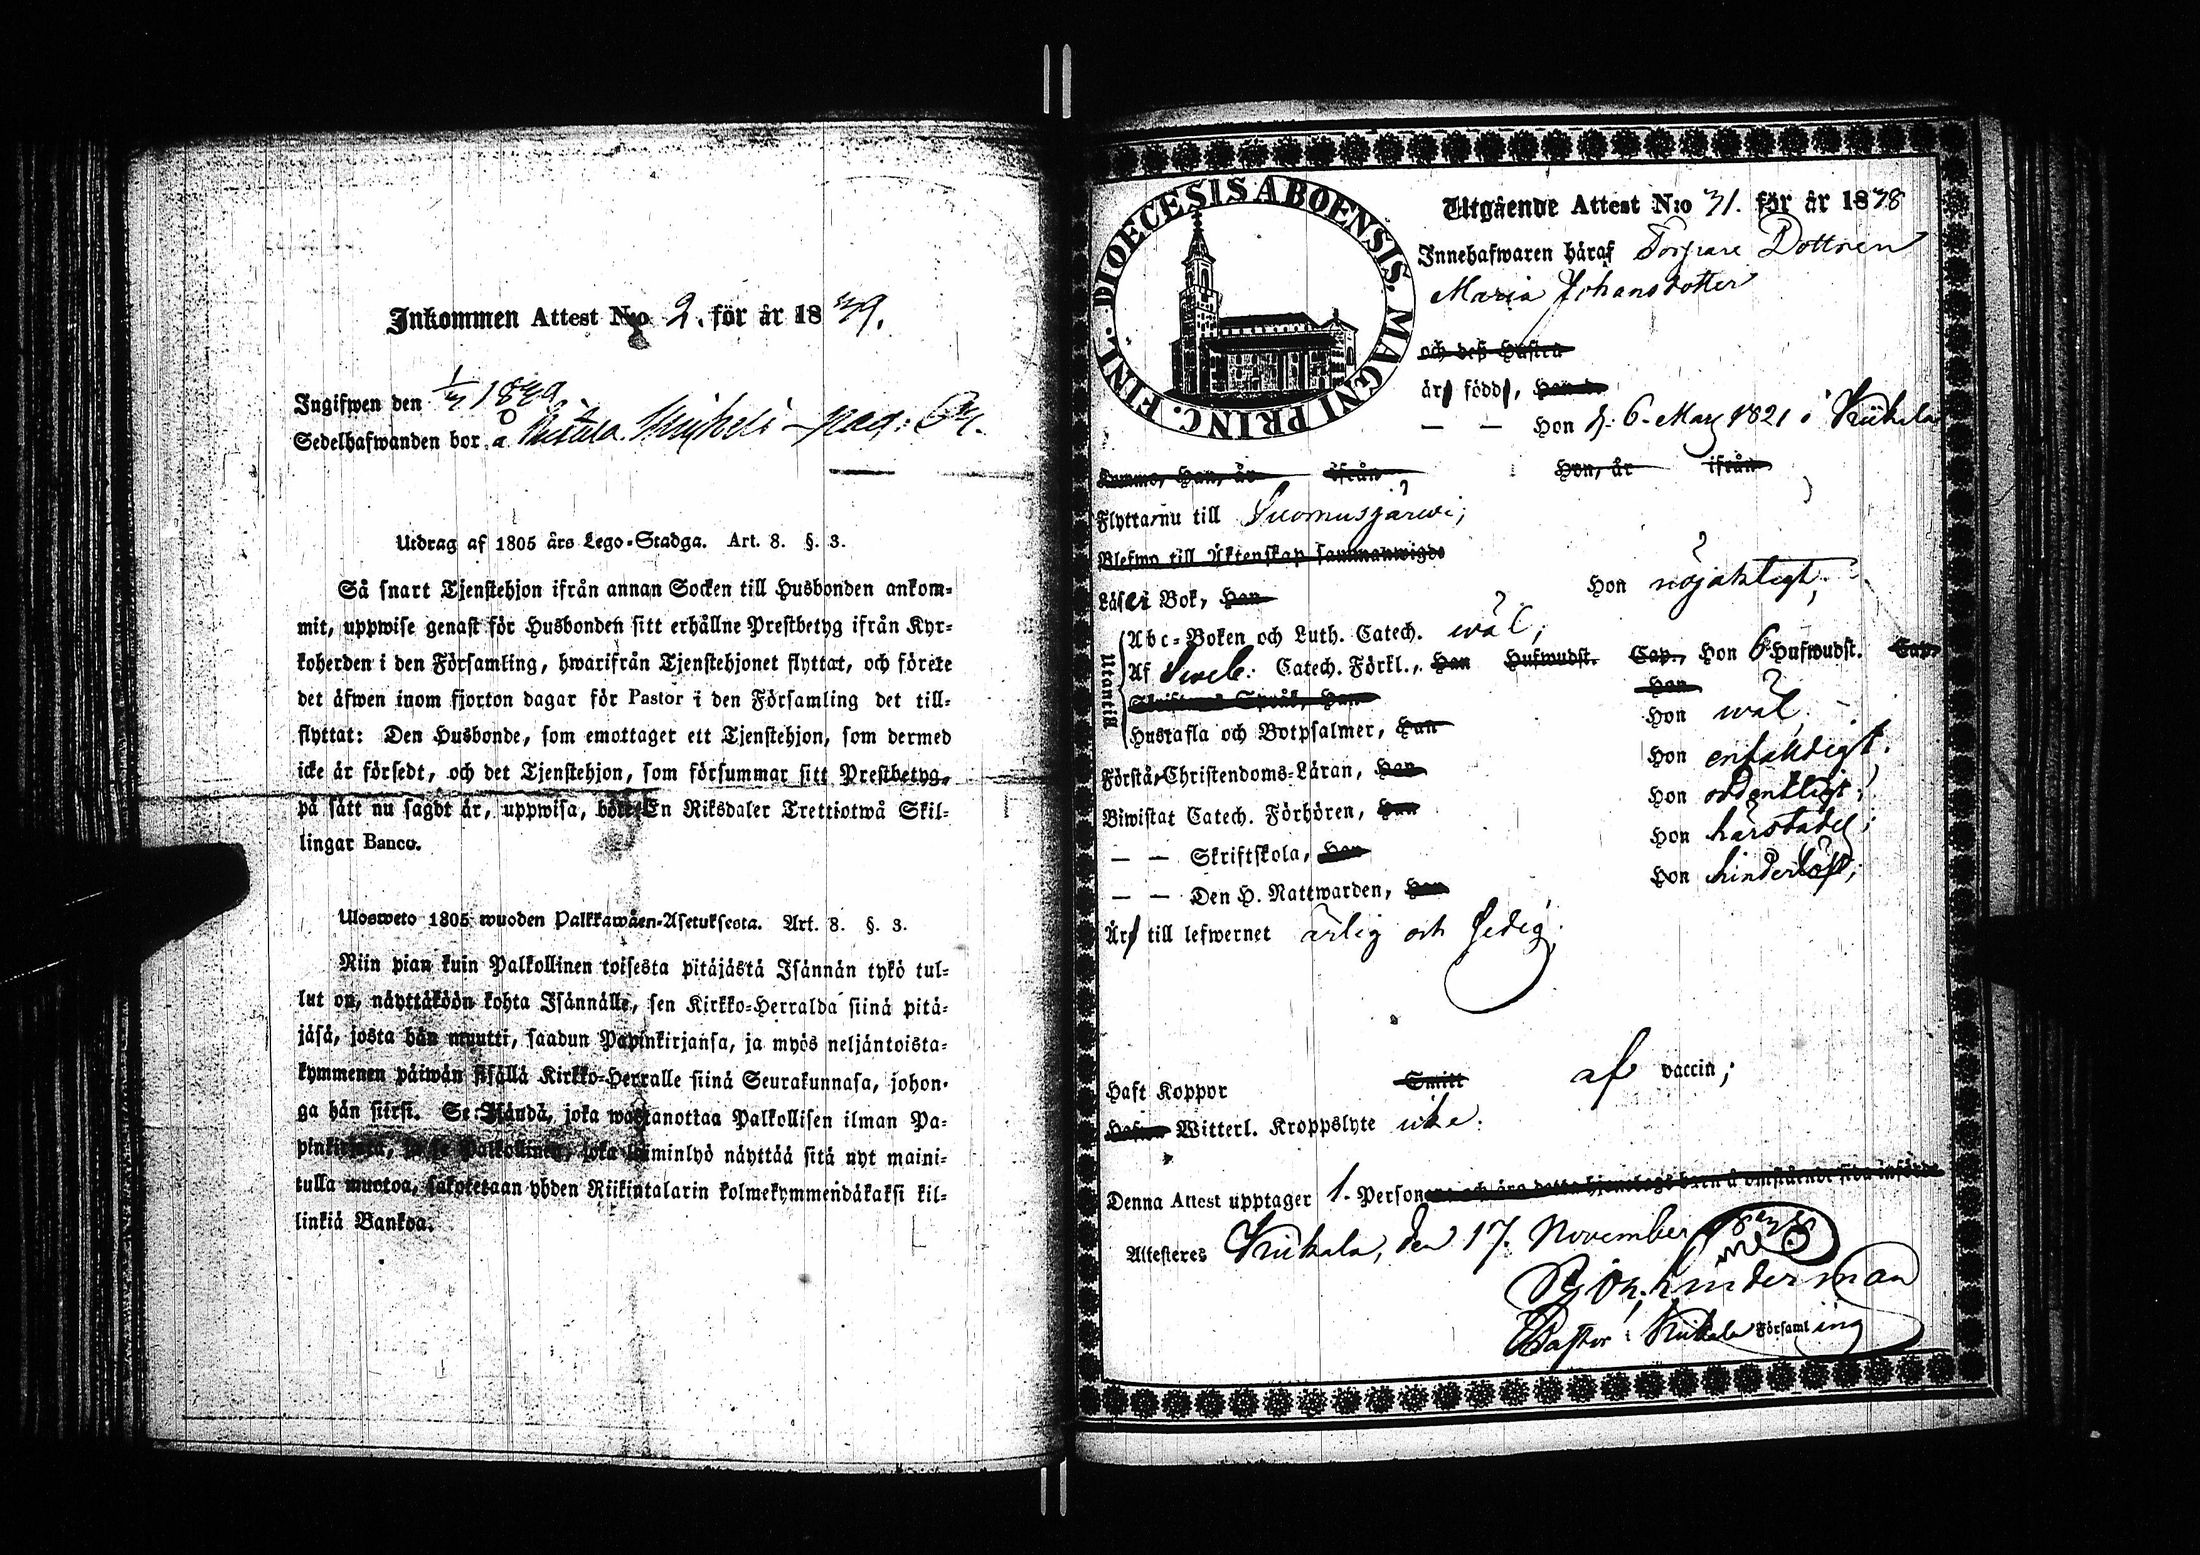 Inkommen Attest N:o 2. för år 1839.
Ingifwen den 1/1 1839
Sedelhafwanden bor å
Utdrag af 1805 års Lego-Stadga. Art. 8. §. 3.
Så snart Tjenstehjon ifrån annan Socken till Husbonden ankom-
mit, uppwise genast för Husbonden sitt erhållne Prestbetyg ifrån Kyr-
koherden i den Församling, hwarifrån Tjenstehjonet flyttat, och förete
det äfwen inom fjorton dagar för Pastor i den Församling det till-
flyttat: Den Husbonde, som emottager ett Tjenstehjon, som dermed
icke är försedt, och det Tjenstehjon, som försummar sitt Prestbetyg,
på sätt nu sagdt är, uppwisa, böte En Riksdaler Trettiotwå Skil-
lingar Banco.
Ulosweto 1805 wuoden Palkkawäen-Asetuksesta. Art. 8. §. 3.
Niin pian kuin Palkollinen toisesta pitäjästä Isännän tykö tul-
lut on, näyttäköön kohta Isännälle, sen Kirkko-Herralda siinä pitä-
jäsä, josta hän muutti, saadun Papinkirjansa, ja myös neljäntoista-
kymmenen päiwän sisällä Kirkko-Herralle siinä Seurakunnasa, johon-
ga hän siirsi. Se Isändä, joka wastanottaa Palkollisen ilman Pa-
pinkirjata, ja se Palkollinen, joka laiminlyö näyttää sitä nyt maini-
tulla muotoa, sakotetaan yhden Riikintalarin kolmekymmendäkaksi kil-
linkiä Bankoa.
DIOECESIS ABOENSIS. MAGNI PRINC. FINL.
Utgående Attest N:o 31. för år 1838
Innehafwaren häraf Torpare Dottren
Maria Johansdotter
och deß Hustru
är född, Han d.
— — Hon d. 6. Maij 1821 i Kiikala
Komme, Han, år ifrån Hon, år ifrån
Flytta nu till Suomusjärwi;
Blefwo till Äktenskap sammanwigde
Läser i Bok, Han Hon nöjaktigt;
Utantill
Abc-Boken och Luth. Catech. wäl;
Af Sweb: Catech. Förkl., Han Hufwudst. Cap., Hon 6 Hufwudst. Cap.
Skriftenes Språk, Han Han
Hustafla och Botpsalmer, Han Hon wäl.
Förstår Christendoms-Läran, Han Hon enfaldigt;
Biwistat Catech. Förhören, Han Hon ordentligt;
— — Skriftskola, Han Hon härstädes;
— — Den H. Nattwarden, Han Hon hinderlöst;
Är till lefwernet ärlig och sedig;
Haft Koppor Smitt af vaccin;
Hafwa Witterl. Kroppslyte icke.
Denna Attest upptager 1. Personer och äro detta hjonelags barn å omstående sida införde
Attesteres Kiikala, den 17. November 1838
Björ. Linderman
Pastor i Kiikala Församling